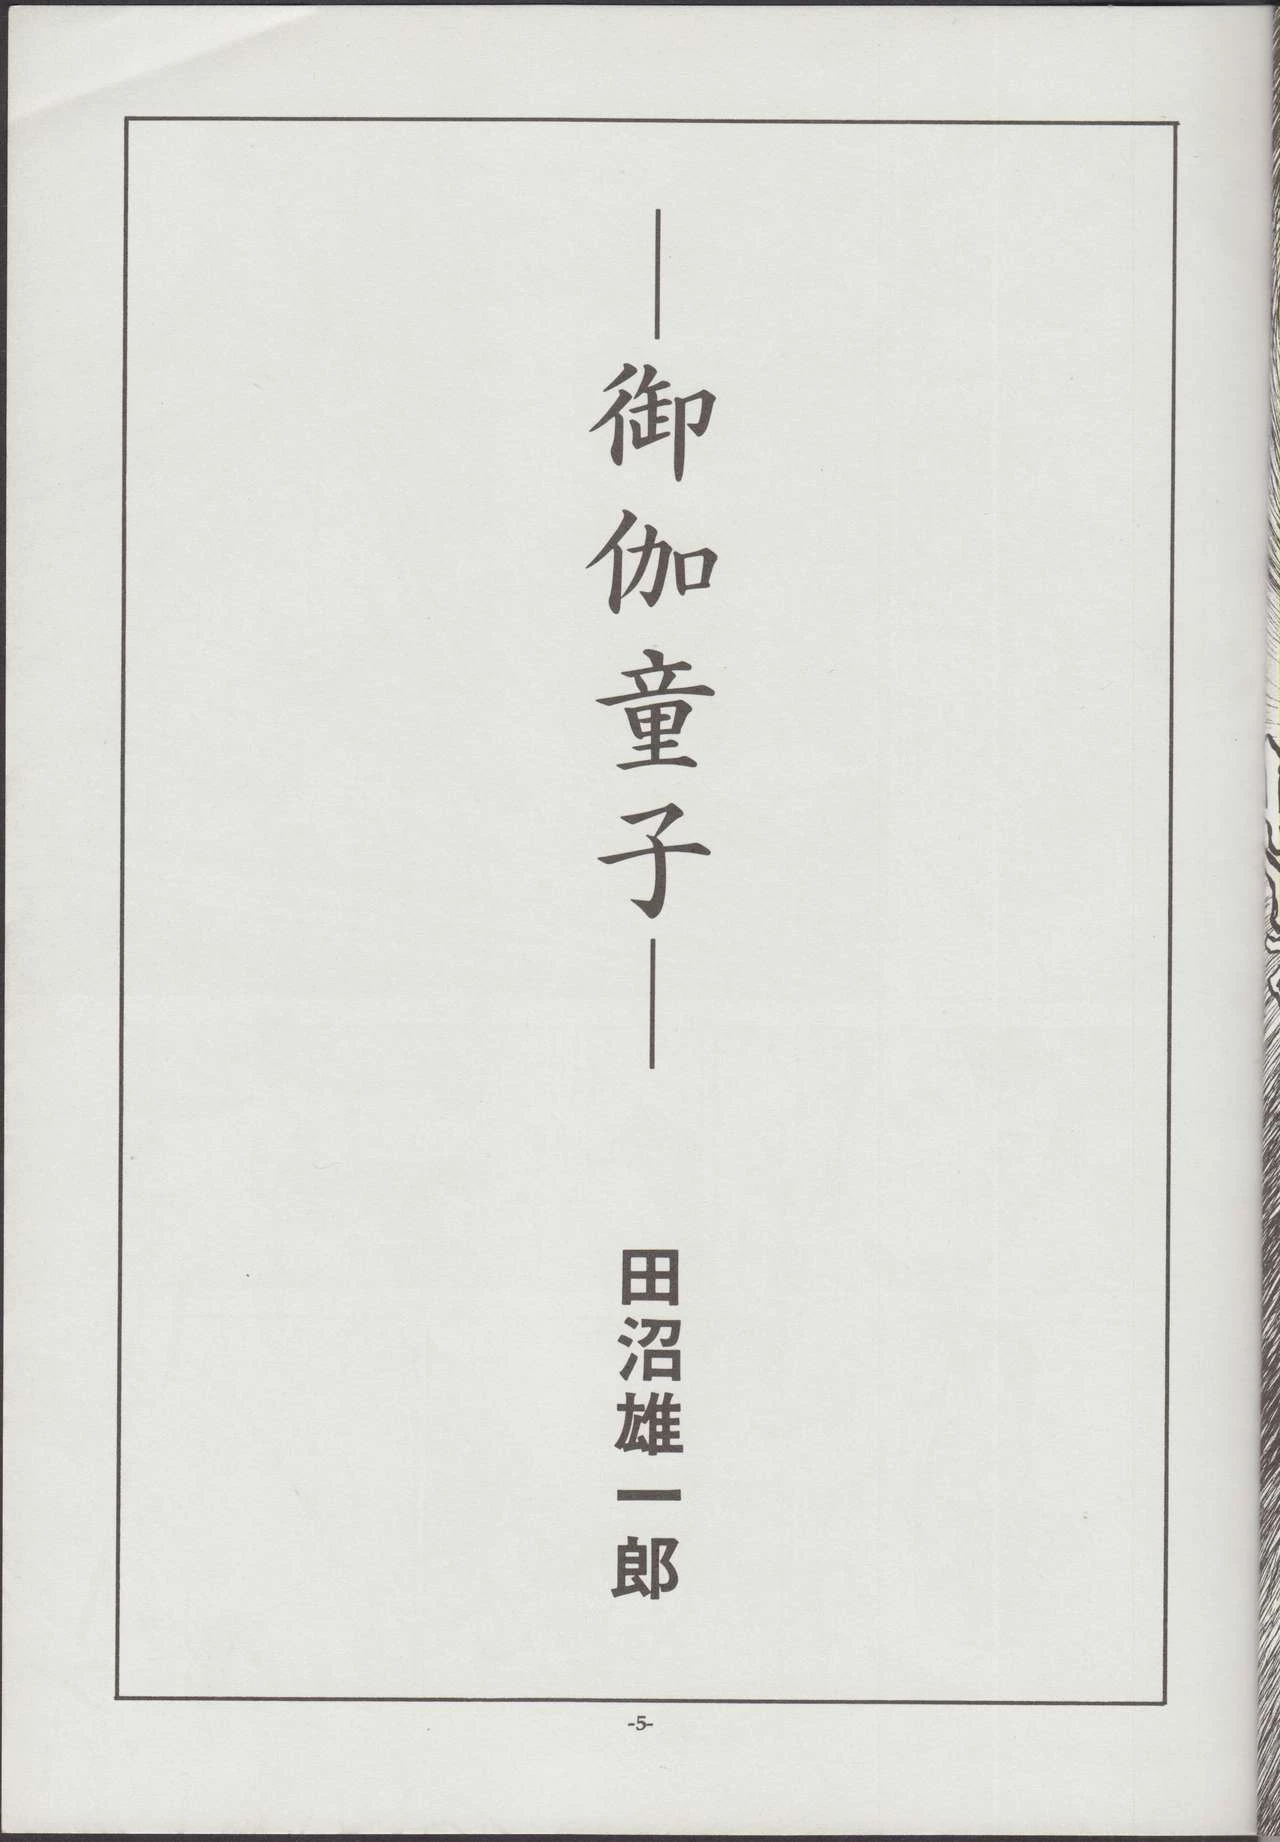 ―御伽童子―
田沼雄一郎
-5-